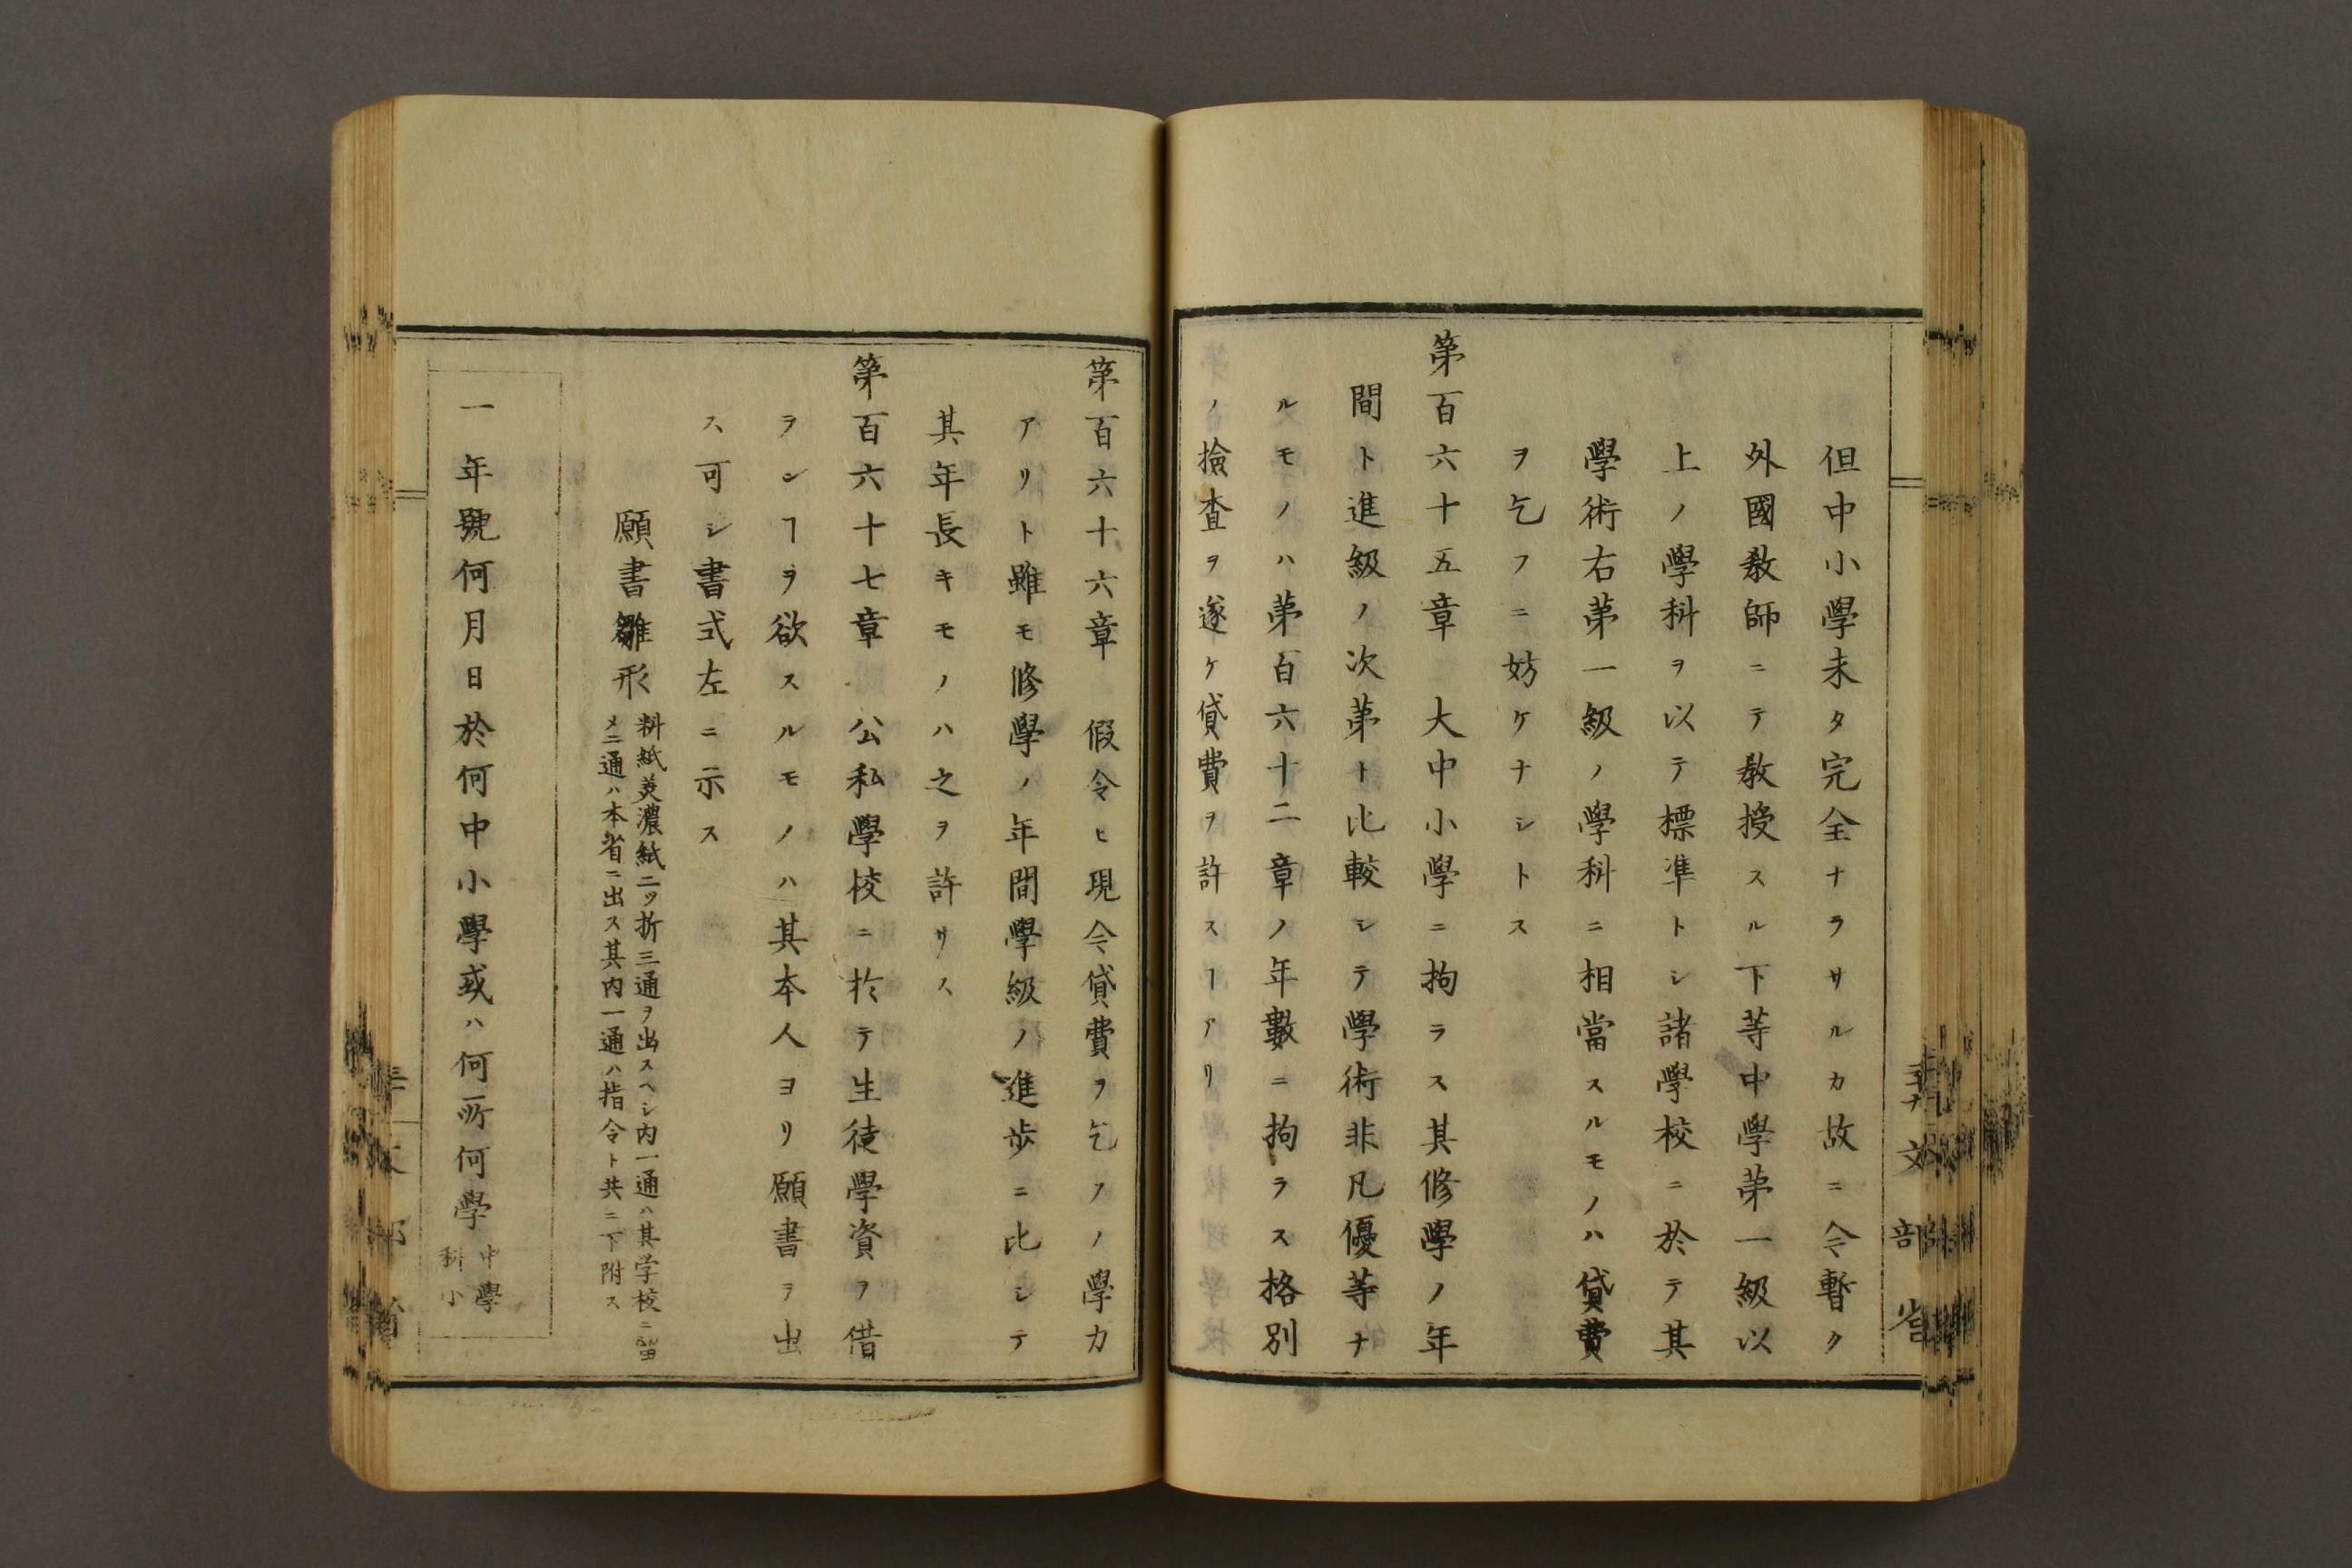 但中小學未タ完全ナラサルカ故ニ今暫ク
外國敎師ニテ敎授スル下等中學第一級以
上ノ學科ヲ以テ標準トシ諸學校ニ於テ其
學術右第一級ノ學科ニ相當スルモノハ貸費
ヲ乞フニ妨ケナシトス
第百六十五章 大中小學ニ拘ラス其修學ノ年
間ト進級ノ次第ト比較シテ學術非凡優等ナ
ルモノハ第百六十二章ノ年數ニ拘ラス格別
ノ撿査ヲ遂ケ貸費ヲ許スヿアリ
第百六十六章 假令ヒ現今貸費ヲ乞フノ學力
アリト雖モ修學ノ年間學級ノ進歩ニ比シテ
其年長キモノハ之ヲ許サス
第百六十七章 公私學校ニ於テ生徒學資ヲ借
ランヿヲ欲スルモノハ其本人ヨリ願書ヲ出
ス可シ書式左ニ示ス
願書雛形
料紙美濃紙二ッ折三通ヲ出スヘシ内一通ハ其学校ニ留
メ二通ハ本省ニ出ス其内一通ハ指令ト共ニ下附ス
一年號何月日於何中小學或ハ何所何學
中學
科小
文部省